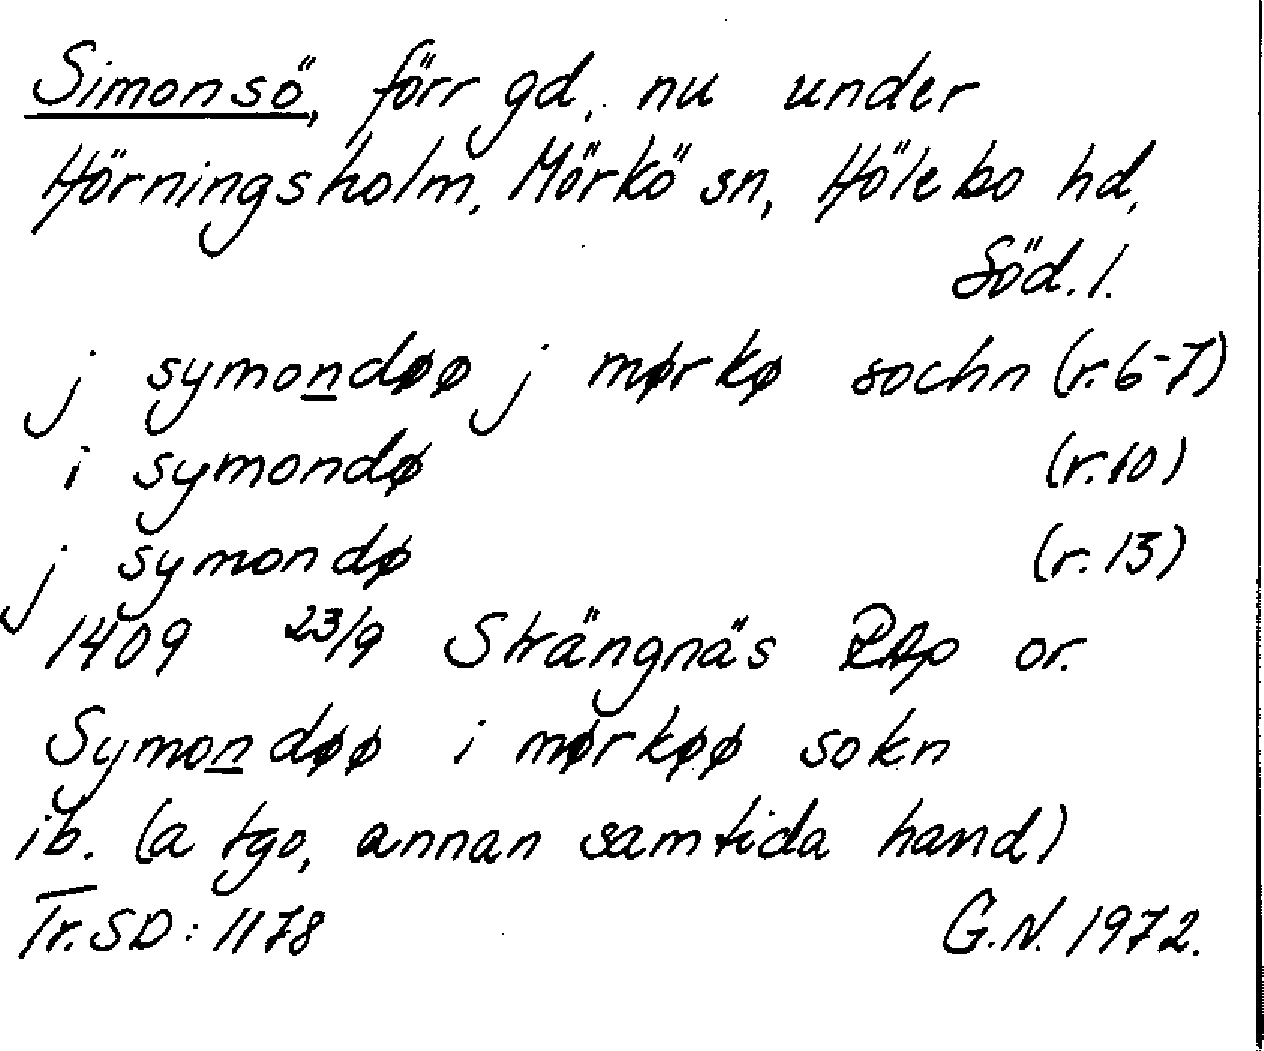 Simonsö, förr gd, nu under
Hörningsholm, Mörkö sn, Hölebo hd,
Söd. l.
j symondøø j mørkø sochn (r. 6-7)
i symondø (r. 10)
j symondø (r. 13)
1409 23/9 Strängnäs RAp or.
Symondøø i mørkøø sokn
ib. (a tgo, annan samtida hand)
Tr. SD: 1178 G.N. 1972.